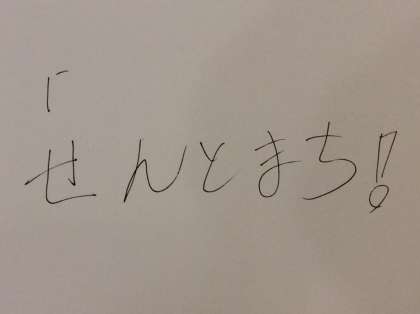 「せんとまち!